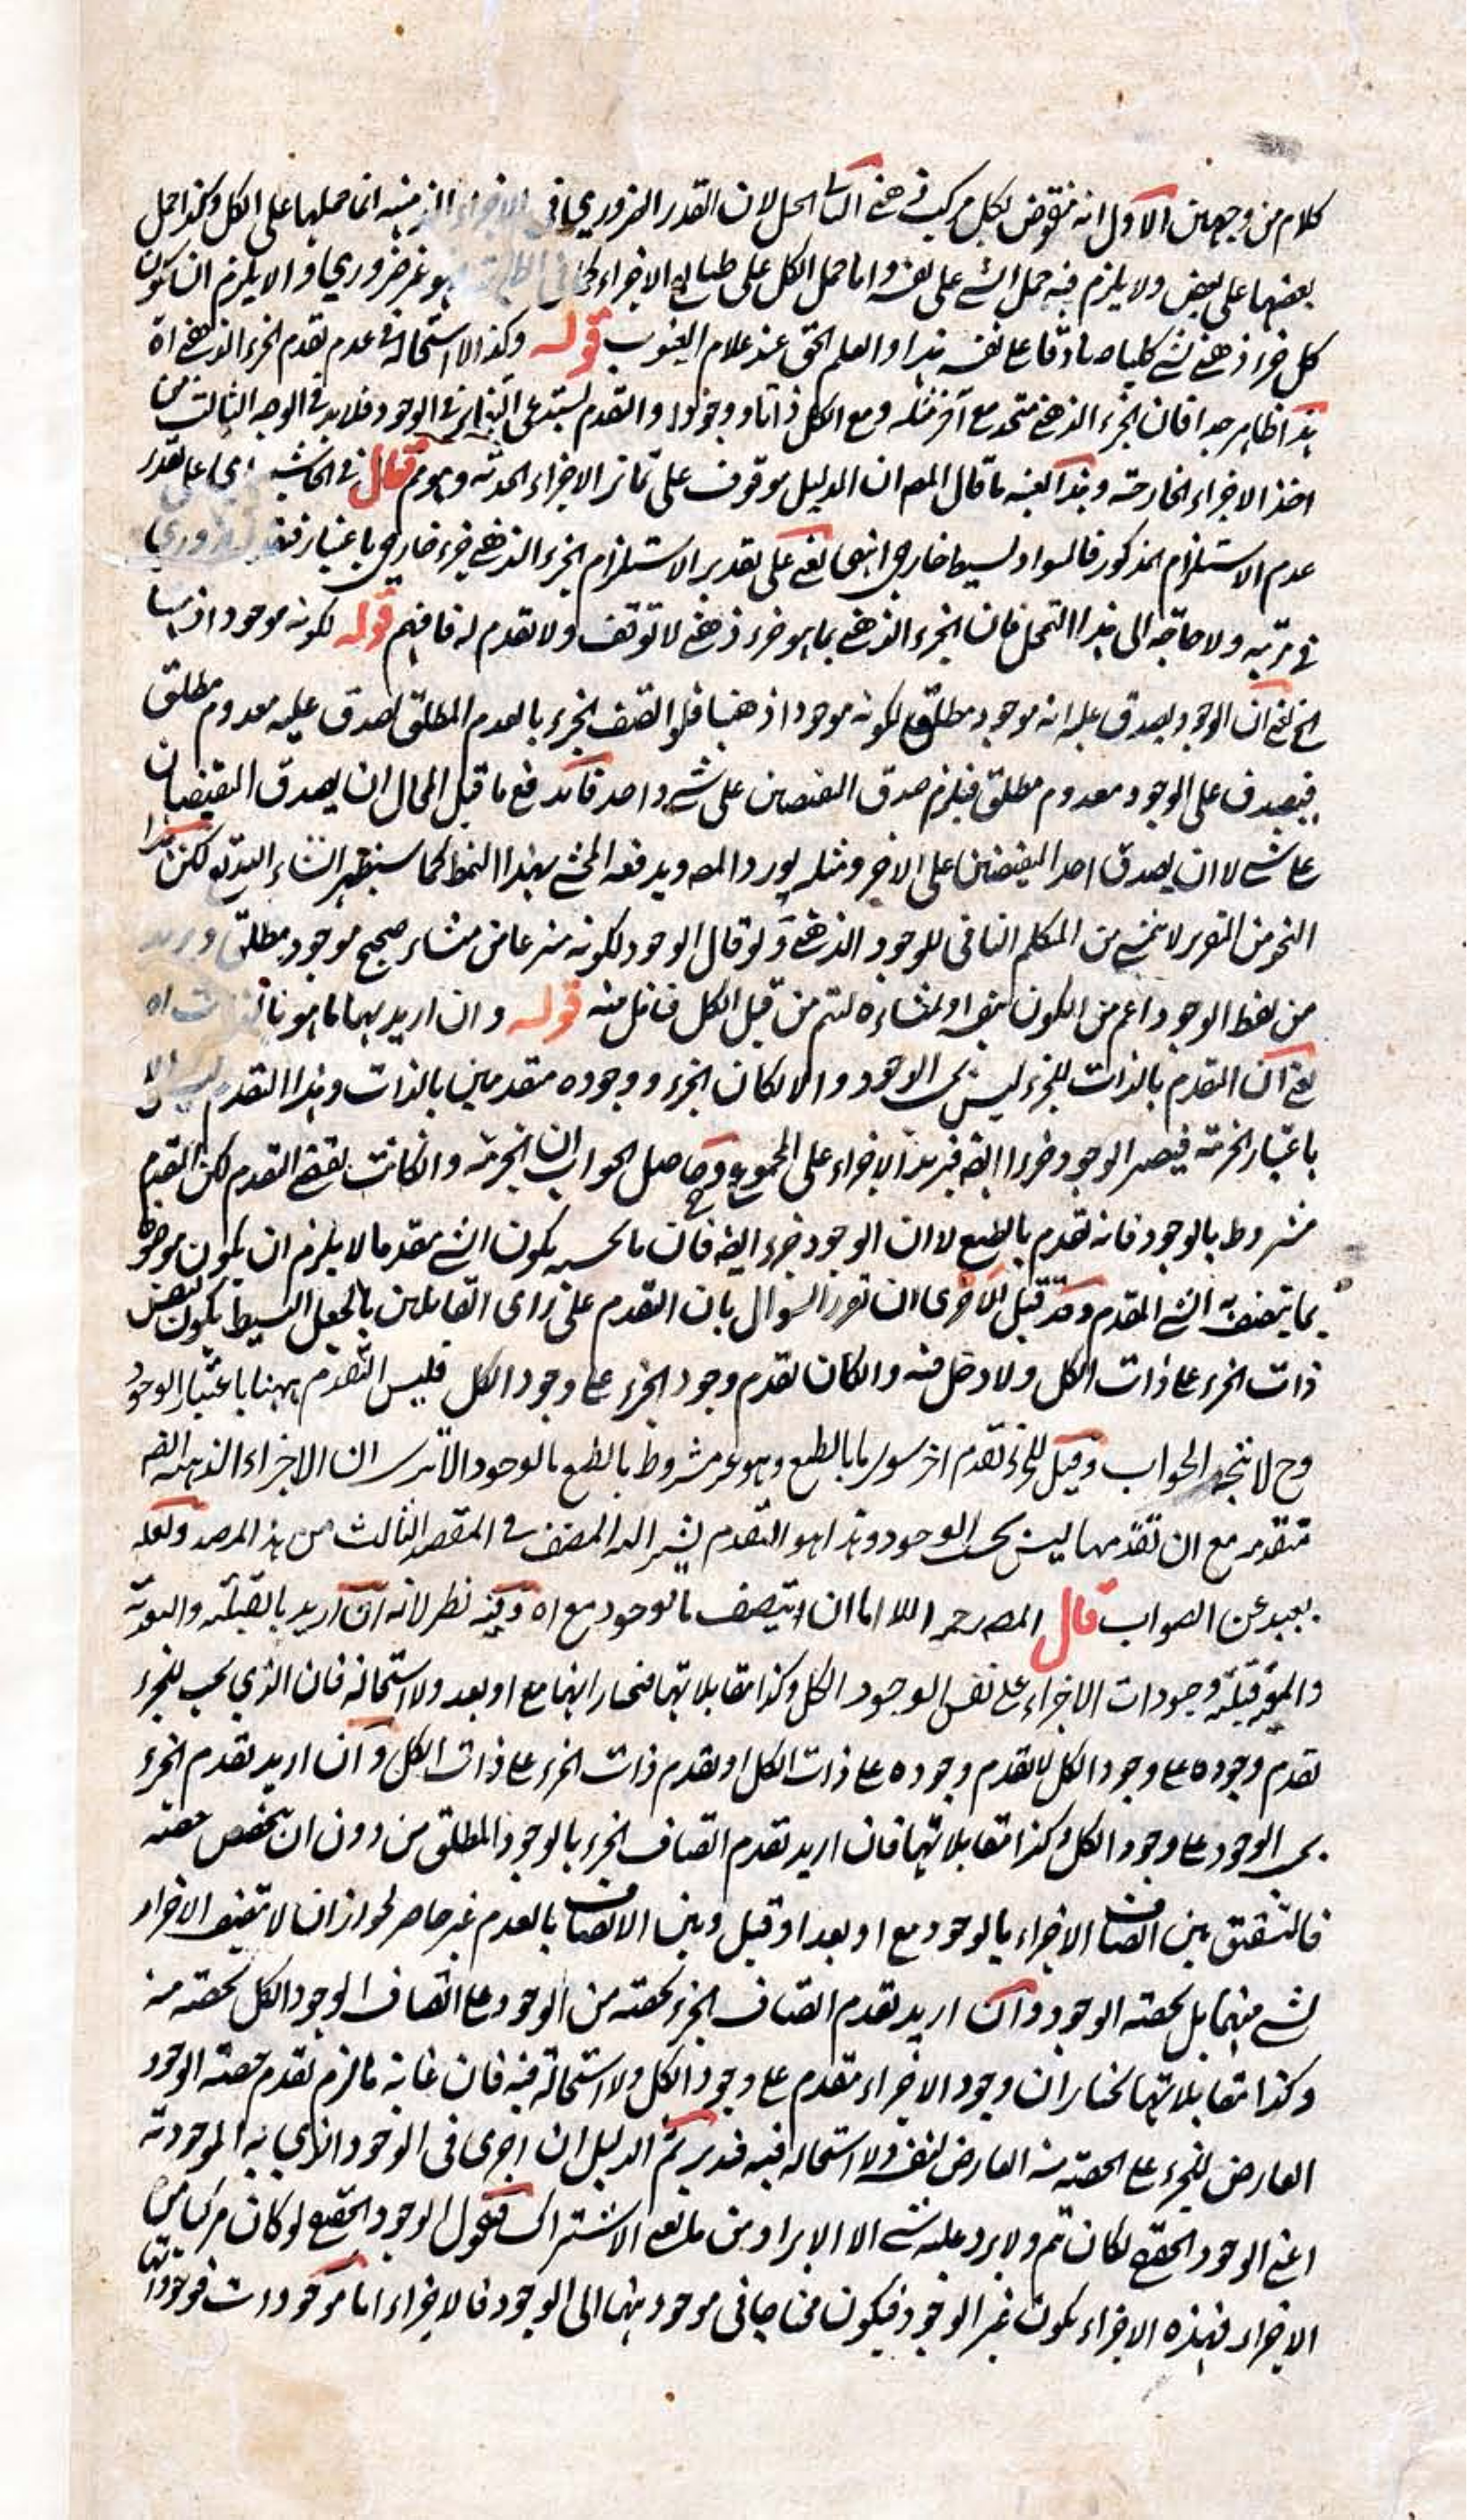 كلام من وجهين الاول انه منقوض بكل مركب ذهني الثاني الحل لان القدر الضروري في الاجزاء الذهنية انما حملها على الكل وكذا حمل
بعضها على بعض ولا يلزم فيه حمل الشي على نفسه واما حمل الكل على طبايع الاجزاء فهو غير ضروري والا يلزم ان يكون
كل جزء ذهني لشي كليا صادقا على نفسه هذا والعلم الحق عند علام الغيوب قوله وكذا لا استحالة في عدم تقدم الجزء الذهني اه
هذا ظاهر جدا فان الجزء الذهني متحد مع آخر مثله ومع الكل ذاتا ووجودا والتقدم يستدعي التغاير في الوجود فلا بد في الوجه الثالث من
اخذ الاجزاء الخارجية وهذا كعينه ما قال المصـ ان الدليل موقوف على تمايز الاجزاء الحدية وهو مم قال في الحاشية اي على تقدير
عدم الاستلزام المذكور فالسواد بسيط خارجي انتهى يعني على تقدير الاستلزام الجزء الذهني جزء خارجي باعتبار فتقدمه ضروري
في مرتبة ولا حاجة الى هذا التمحل فان الجزء الذهني بما هو جزء ذهني لا توقف ولا تقدم له فافهم قوله لكونه موجودا ذهنيا
الخ يعني ان الوجود يصدق عليه انه موجود مطلق لكونه موجودا ذهنيا فلو اتصف الجزء بالعدم المطلق لصدق عليه معدوم مطلق
فيصدق على الوجود معدوم مطلق فيلزم صدق النقيضين على شي واحد فاندفع ما قيل المحال ان يصدق النقيضان
على شي لا ان يصدق احد النقيضين على الاخر ومثله يورد المصـ ويدفعه المحشي بهذا النمط كما سيظهر انشاء الله تع لكن هذا
النحو من التقرير لا يتمشى من المتكلم النافي للوجود الذهني ولو قال الوجود لكونه منتزعا من منشاء صحيح موجود مطلق ويريد
من لفظ الوجود اعم من الكون بنفسه او بمنشاءه لتم من قبل الكل فتامل فيه قوله وان اريد بهما ما هو بالذات اه
يعني ان التقدم بالذات للجزء ليس بحسب الوجود والا لكان الجزء ووجوده متقدمين بالذات وهذا التقدم ليس الا
باعتبار الجزئية فيصير الوجود جزءا ايضا فيزيد الاجزاء على المجموع وحاصل الجواب ان الجزئية وان كانت يقتضي التقدم لكن التقدم
مشروط بالوجود فانه تقدم بالطبع لا ان الوجود جزء ايضا فان ما بحسبه يكون الشي متقدما لا يلزم ان يكون موصوفا
بما يتصف به الشي المتقدم وقد قيل الاحرى ان تقرر السوال بان التقدم على راى القائلين بالجعل البسيط يكون لنفس
ذات الجزء على ذات الكل ولا دخل فيه وان كان تقدم وجود الجزء على وجود الكل فليس التقدم ههنا باعتبار الوجود
وح لا يتجه الجواب وقيل للجزء تقدم اخر سوى ما بالطبع وهو غير مشروط بالوجود الا ترى ان الاجزاء الذهنية ايضا
متقدمه مع ان تقدمها ليس بحسب الوجود وهذا هو التقدم يشير اليه المصنف في المقصد الثالث من هذا المرصد ولعله
بعيد عن الصواب قال المصـ رحمه الله اما ان يتصف بالوجود مع اه وفيه نظر لانه ان اريد بالقبلية والبعدية
والمعية قبلية وجودات الاجزاء على نفس الوجود الكل وكذا مقابلاتها فنختار انها مع او بعد ولا استحالة فان الذي يجب للجزء
تقدم وجوده على وجود الكل لا تقدم وجوده على ذات الكل او تقدم ذات الجزء على ذات الكل وان اريد تقدم الجزء
بحسب الوجود على وجود الكل وكذا مقابلاتها فان اريد تقدم اتصاف الجزء بالوجود المطلق من دون ان تخصص حصته
فالتشقيق بين اتصاف الاجزاء بالوجود مع او بعد او قبل وبين الاتصاف بالعدم غير حاصر لجواز ان لا تتصف الاجزاء
بشي منهما بل بحصته الوجود وان اريد تقدم اتصاف الجزء بحصته من الوجود على اتصاف الوجود الكل بحصته منه
وكذا مقابلاتها نختار ان وجود الاجزاء متقدم على وجود الكل ولا استحالة فيه فان غاية ما لزم تقدم حصته الوجود
العارض للجزء على الحصته منه العارض لنفسه ولا استحاله فيه فتدبر ثم الدليل ان اجرى في الوجود الذي به الموجودية
اعني الوجود الحقيقي لكان تم ولا يرد عليه شي الا الايراد من مانعي الاشتراك فنقول الوجود الحقيقي لو كان مركبا من
الاجزاء فهذه الاجزاء يكون غير الوجود فيكون محتاجا في موجوديتها الى الوجود فالاجزاء اما موجودات فوجوداتها